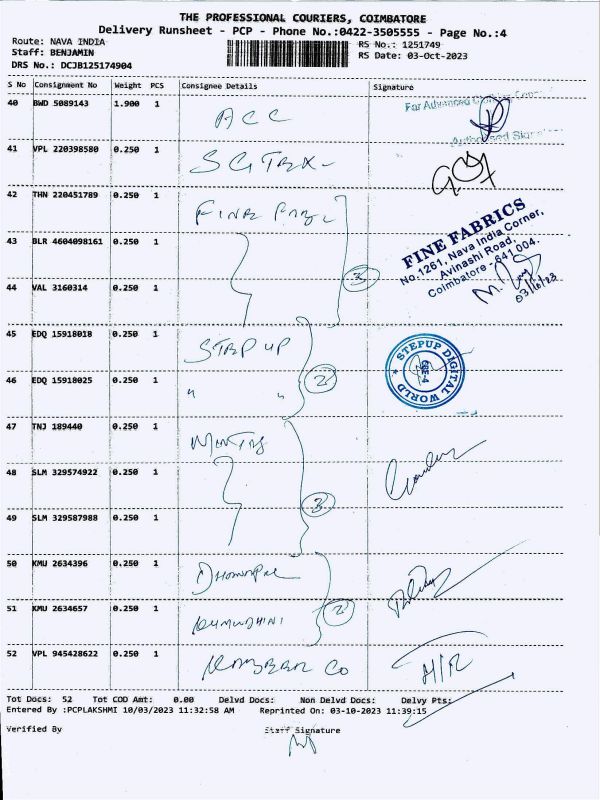 THE PROFESSIONAL COURIERS, COIMBATORE
Delivery Runsheet - PCP - Phone No.:0422-3505555 - Page No.:4
Route: NAVA INDIA
RS No.: 1251749
Staff: BENJAMIN
RS Date: 03-Oct-2023
DRS No.: DCJB125174904
S No Consignment No Weight PCS Consignee Details Signature
40 BWD 5089143 1.900 1 ACC
For Advanced
Authorised
41 VPL 220398580 0.250 1
42 THN 220451789 0.250 1 FINE FABC
43 BLR 4604098161 0.250 1
FINE FABRICS
No.1261, Nava India Corner,
Avinashi Road,
Coimbatore - 641 004.
44 VAL 3160314 0.250 1 3
45 EDQ 15918018 0.250 1 STEP UP
STEPUP DIGITAL WORLD
CBE-4
46 EDQ 15918025 0.250 1 " " 2
47 TNJ 189440 0.250 1
48 SLM 329574922 0.250 1 3
49 SLM 329587988 0.250 1
50 KMU 2634396 0.250 1
51 KMU 2634657 0.250 1 KUMUDHINI 2
52 VPL 945428622 0.250 1
Tot Docs: 52 Tot COD Amt: 0.00 Delvd Docs: Non Delvd Docs: Delvy Pts:
Entered By :PCPLAKSHMI 10/03/2023 11:32:58 AM Reprinted On: 03-10-2023 11:39:15
Verified By Staff Signature